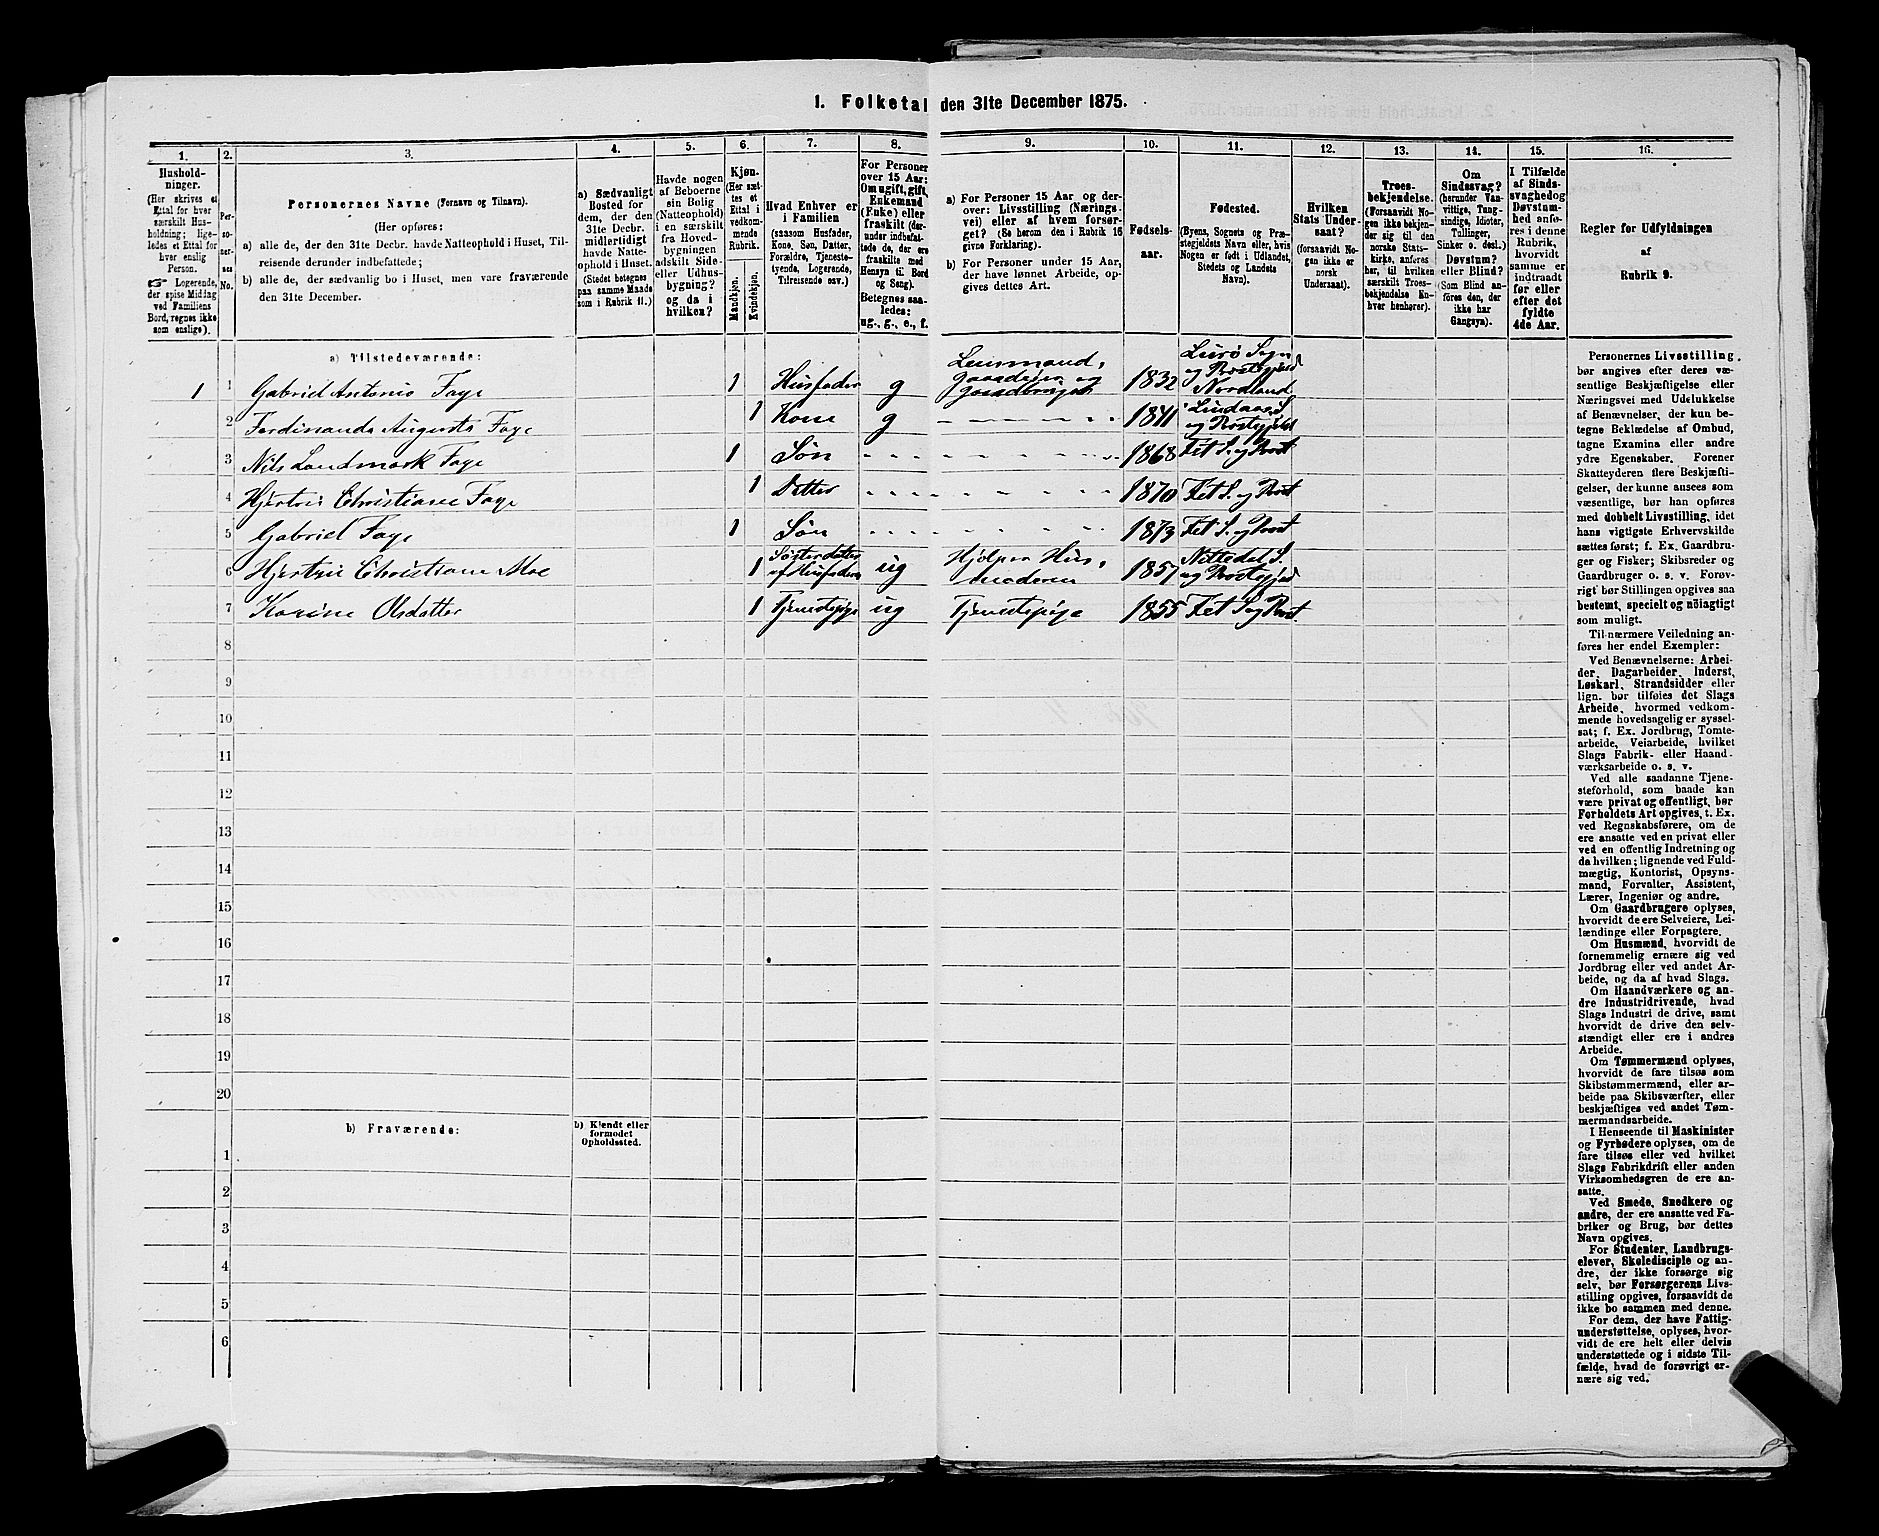 1. Folketal den 31te December 1875.
1.
2.
3.
4.
5.
6.
7.
8.
9.
10.
11.
12.
13.
14.
15.
16.
Hushold-
ninger.
(Her skrives et
Ettal for hver
særskilt Hus-
holdning; lige-
ledes et Ettal for
hver enslig
Person.
☞ Logerende,
der spise Middag
ved Familiens
Bord, regnes ikke
som enslige).
Per-
so-
ner-
nes
No.
Personernes Navne (Fornavn og Tilnavn).
(Her opføres:
a) alle de, der den 31te Decbr. havde Natteophold i Huset, Til-
reisende derunder indbefattede;
b) alle de, der sædvanlig bo i Huset, men vare fraværende
den 31te December.
a) Sædvanligt
Bosted for
dem, der den
31te Decbr.
midlertidigt
havde Natte-
ophold i Huset.
(Stedet betegnes
paa samme Maade
som i Rubrik 11.)
Havde nogen
af Beboerne
sin Bolig
(Natteophold)
i en særskilt
fra Hoved-
bygningen
adskilt Side-
eller Udhus-
bygning?
og da i
hvilken?
Kjøn.
(Her sæt-
tes et
Ettal i
vedkom-
mende
Rubrik.
Mandkjøn.
Kvindekjøn.
Hvad Enhver er
i Familien
(saasom Husfader,
Kone, Søn, Datter,
Forældre, Tjeneste-
tyende, Logerende,
Tilreisende osv.)
For Personer
over 15 Aar:
Om ugift, gift,
Enkemand
(Enke) eller
fraskilt (der-
under indbefat-
tede de, der ere
fraskilte med
Hensyn til Bord
og Seng).
Betegnes saa-
ledes:
ug., g., e., f.
a) For Personer 15 Aar og der-
over: Livsstilling (Nærings-
vei) eller af hvem forsør-
get? (Se herom den i Rubrik 16
givne Forklaring).
b) For Personer under 15 Aar,
der have lønnet Arbeide, op-
gives dettes Art.
Fødsels-
aar.
Fødested.
(Byens, Sognets og Præ-
stegjeldets Navn eller, hvis
Nogen er født i Udlandet,
Stedets og Landets
Navn).
Hvilken
Stats Under-
saat?
(forsaavidt No-
gen ikke er
norsk
Undersaat).
Troes-
bekjendelse.
(Forsaavidt No-
gen ikke bekjen-
der sig til den
norske Stats-
kirke, anføres
her, til hvilken
særskilt Troes-
bekjendelse En-
hver henhører).
Om
Sindssvag?
(herunder Van-
vittige, Tung-
sindige, Idioter,
Tullinger,
Sinker o. desl.)
Døvstum?
eller Blind?
(Som Blind an-
føres den, der
ikke har
Gangsyn).
I Tilfælde
af Sinds-
svaghed og
Døvstum-
hed anfø-
res i denne
Rubrik,
hvorvidt
samme er
indtraadt
før eller
efter det
fyldte
4de Aar.
Regler for Udfyldningen
af
Rubrik 9.
a) Tilstedeværende:
1 1 Gabriel Antonio Faye 1 Husfader g Lensmand, Gaardeier og Gaardbruger 1832 Lurö Sogn og Prestegjeld Nordland
2 Ferdinanda Augusta Faye 1 Kone g 1841 Lindaas S. og Prestegjeld
3 Nils Landmark Faye 1 Søn 1868 Fet S. og Prest
4 Hjertrü Christiane Faye 1 Datter 1870 Fet S. og Prest
5 Gabriel Faye 1 Søn 1873 Fet S. og Prest
6 Hjertrü Christiane Moe 1 Søsterdatter af Husfader ug Hjelper Husmoderen 1857 Nittedal S. og Prestegjeld
7 Karine Olsdatter 1 Tjenestepige ug Tjenestepige 1855 Fet S. og Prst.
8
9
10
11
12
13
14
15
16
17
18
19
20
b) Fraværende:
b) Kjendt eller
formodet
Opholdssted.
1
2
3
4
5
6
Personernes Livsstilling
bør angives efter deres væ-
sentlige Beskjæftigelse eller
Næringsvei med Udelukkelse
af Benævnelser, der kun be-
tegne Beklædelse af Ombud,
tagne Examina eller andre
ydre Egenskaber. Forener
Skatteyderen flere Beskjæfti-
gelser, der kunne ansees som
væsentlige, bør han opføres
med dobbelt Livsstilling, idet
hans vigtigste Erhvervskilde
sættes først; f. Ex. Gaardbru-
ger og Fisker; Skibsreder og
Gaardbruger o. s. v. Forøv-
rigt bør Stillingen opgives saa
bestemt, specielt og nöiagtigt
som muligt.
Til nærmere Veiledning an-
føres her endel Exempler:
Ved Benævnelserne: Arbei-
der, Dagarbeider, Inderst,
Løskarl, Strandsidder eller
lign. bør tilføies det Slags
Arbeide, hvormed vedkom-
mende hovedsagelig er syssel-
sat; f. Ex. Jordbrug, Tomte-
arbeide, Veiarbeide, hvilket
Slags Fabrik- eller Haand-
værksarbeide o. s. v.
Ved alle saadanne Tjene-
steforhold, som baade kan
være privat og offentligt, bør
Forholdets Art opgives, t. Ex.
ved Regnskabsførere, om de
ere ansatte ved en privat eller
ved en offentlig Indretning og
da hvilken; lignende ved Fuld-
mægtig, Kontorist, Opsyns-
mand, Forvalter, Assistent,
Lærer, Ingeniør og andre.
Om Gaardbrugere oplyses,
hvorvidt de ere Selveiere, Lei-
lændinge eller Forpagtere.
Om Husmænd, hvorvidt de
fornemmelig ernære sig ved
Jordbrug eller ved andet Ar-
beide, og da af hvad Slags.
Om Haandværkere og an-
dre Industridrivende, hvad
Slags Industri de drive, samt
hvorvidt de drive den selv-
stændigt eller ere i andres
Arbeide.
Om Tømmermænd oplyses,
hvorvidt de fare tilsøs som
Skibstømmermænd, eller ar-
beide paa Skibsværfter, eller
beskjæftiges ved andet Tøm-
mermandsarbeide.
I Henseende til Maskinister
og Fyrbødere oplyses, om de
fare tilsøs eller ved hvilket
Slags Fabrikdrift eller anden
Virksomhedsgren de ere an-
satte.
Ved Smede, Snedkere og
andre, der ere ansatte ved Fa-
briker og Brug, bør dettes
Navn opgives.
For Studenter, Landbrugs-
elever, Skoledisciple og an-
dre, der ikke forsørge sig
selv, bør Forsørgerens Livs-
stilling opgives, forsaavidt de
ikke bo sammen med denne.
For dem, der have Fattig-
understøttelse, oplyses, hvor-
vidt de ere helt eller delvis
understøttede og i sidste Til-
fælde, hvad de forøvrigt er-
nære sig ved.